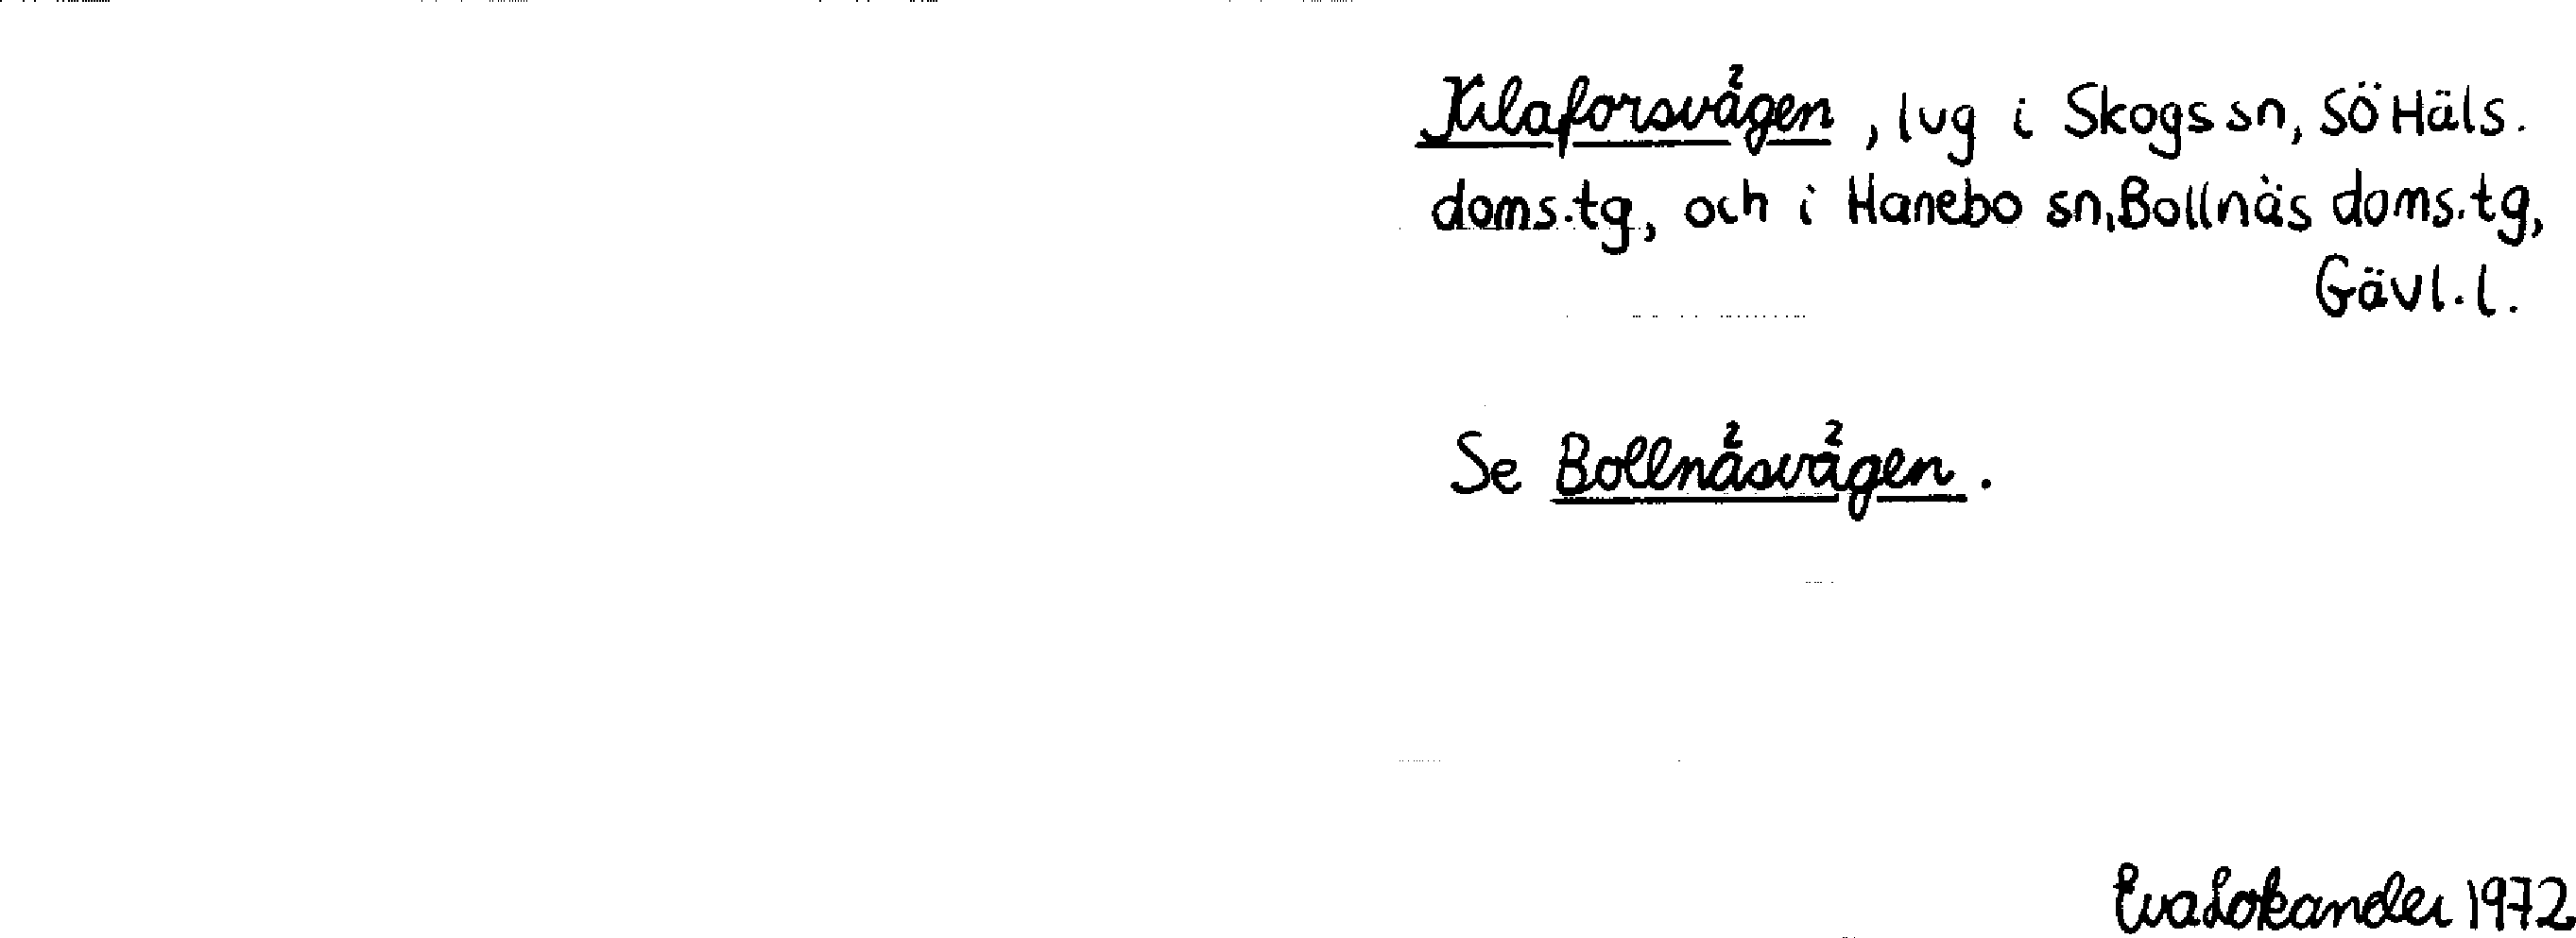 Kilaforsvägen, lvg i Skogs sn, SÖ Häls.
doms.tg, och i Hanebo sn, Bollnäs doms.tg,
Gävl.l.
Se Bollnäsvägen.
Eva Lokander 1972